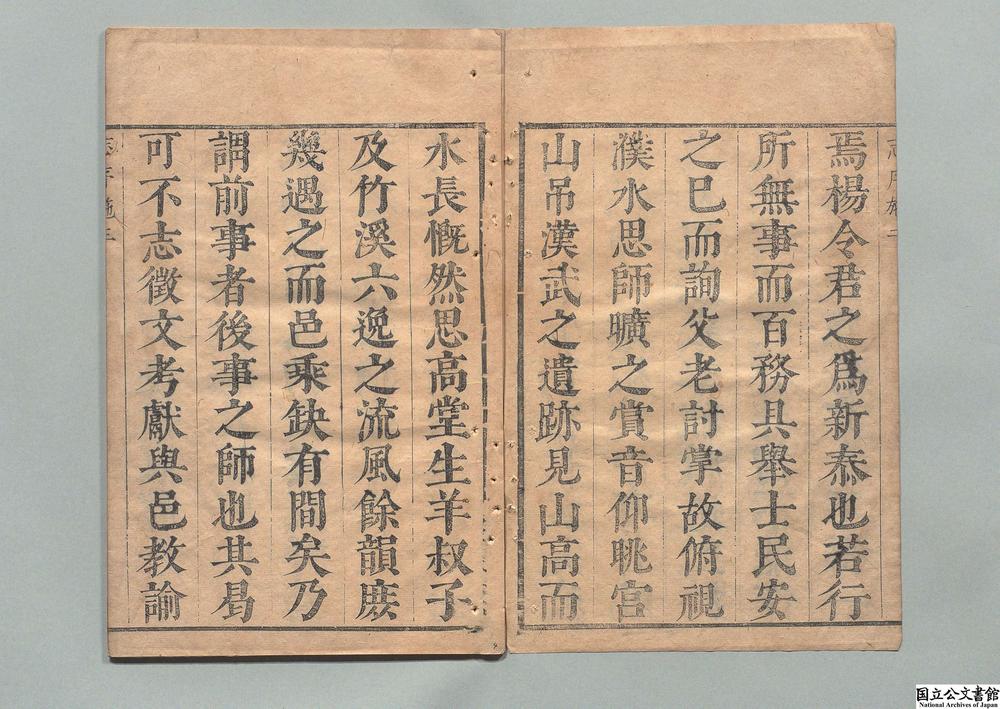 焉楊令君之爲新泰也若行
所無事而百務具舉士民安
之已而詢父老討掌故俯視
濮水思師曠之賞音仰眺宫
山吊漢武之遺跡見山高而
水長慨然思高堂生羊叔子
及竹溪六逸之流風餘韻庻
幾遇之而邑乘缺有間矣乃
謂前事者後事之師也其曷
可不志徵文考獻與邑教諭
国立公文書館
National Archives of Japan